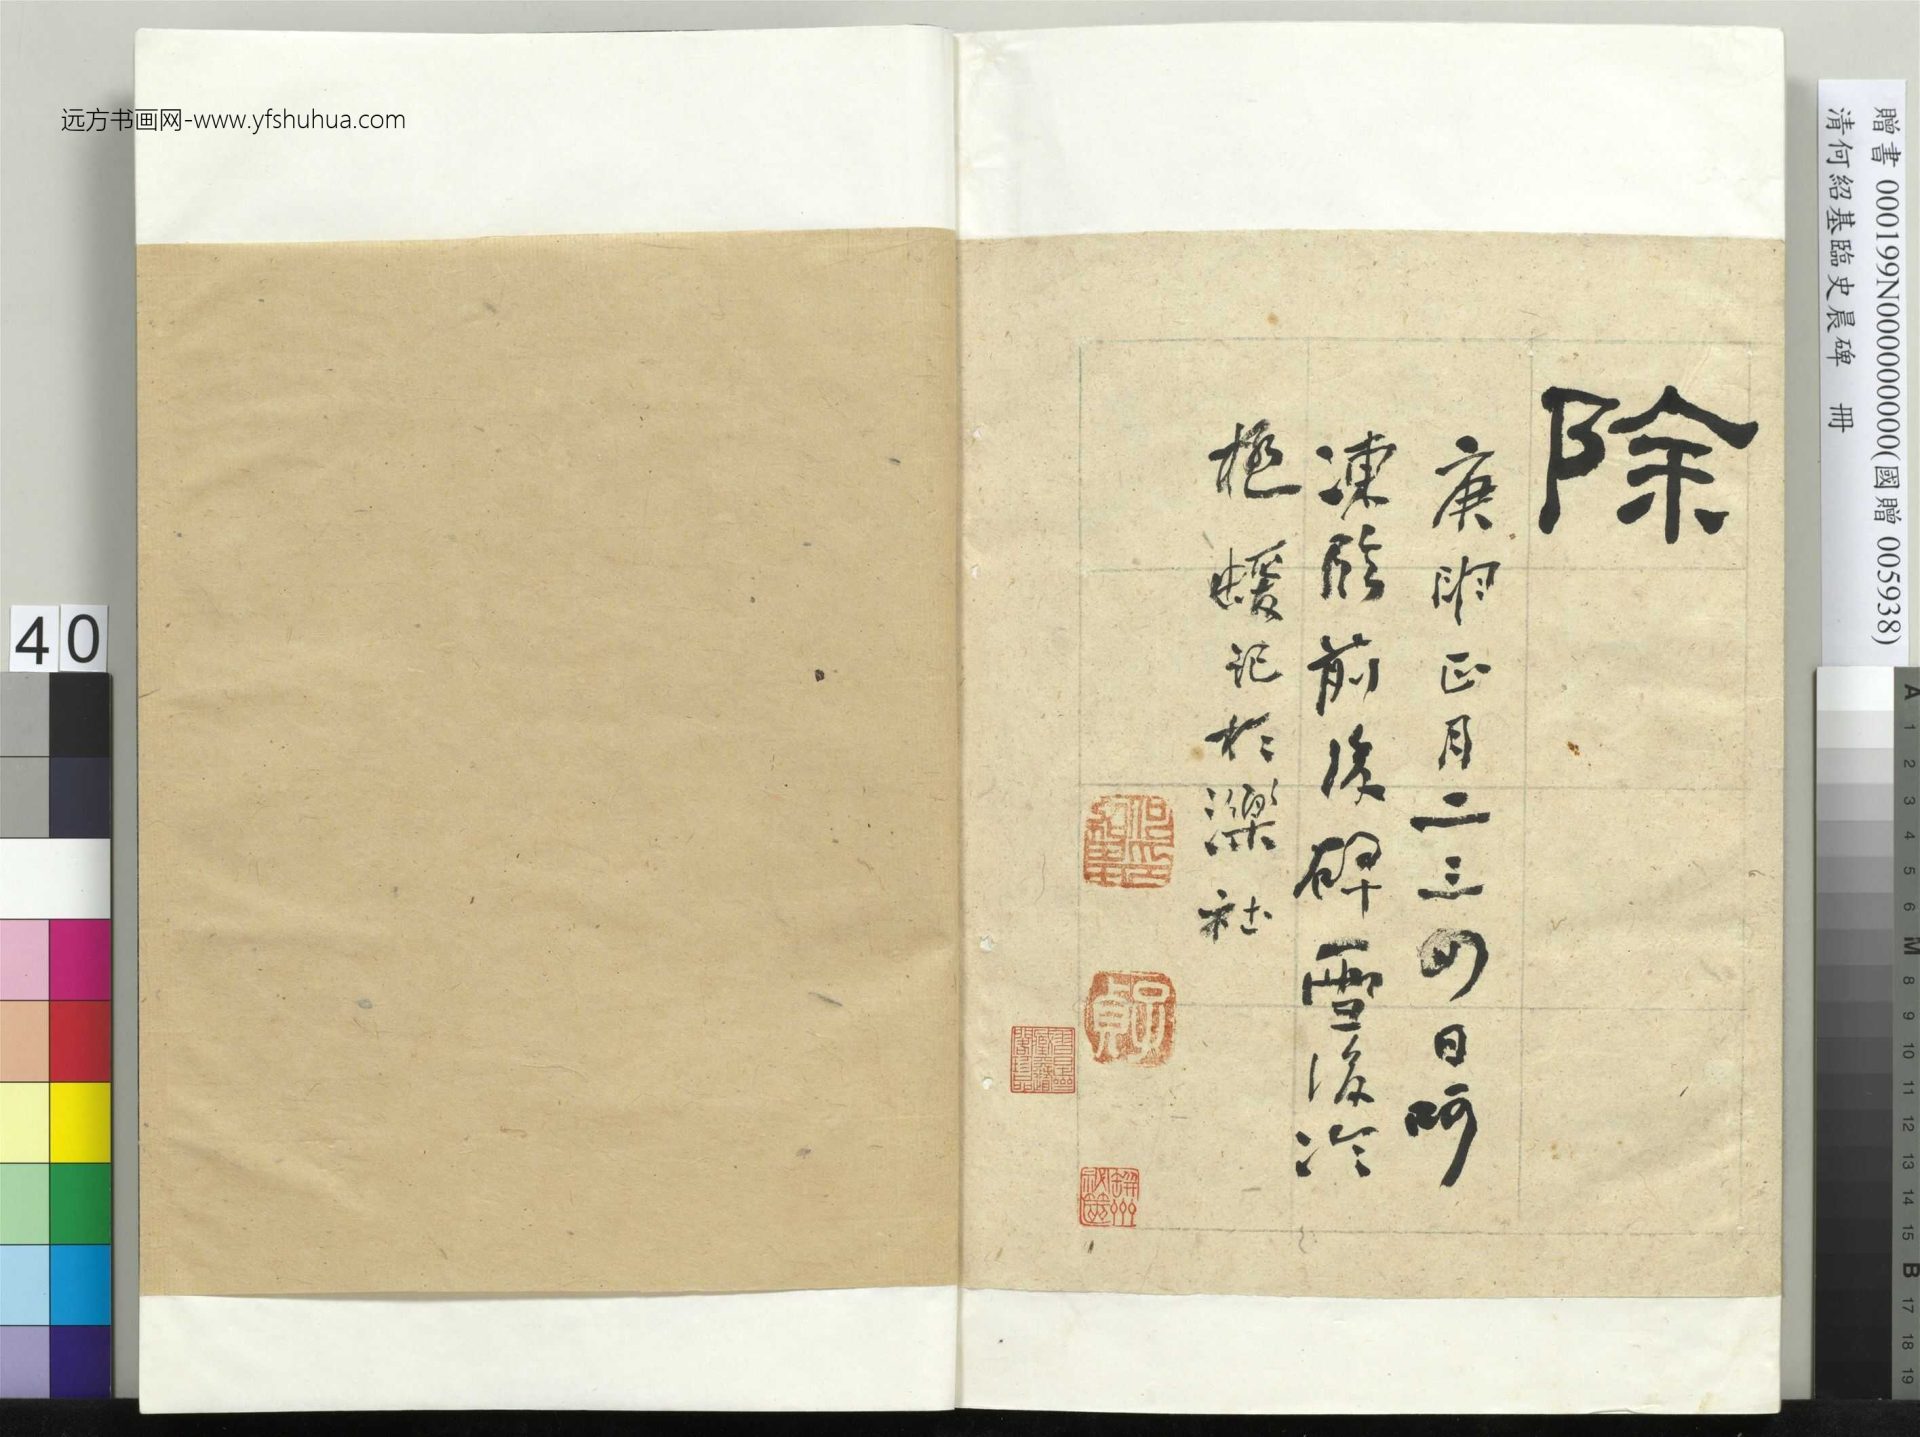 远方书画网-www.yfshuhua.com
贈書 000199N000000000(國贈 005938)
清何紹基臨史晨碑 冊
除
庚申正月二三四日呵
凍臨前後碑雪後冷
極蝯記於濼社
40
A 1 2 3 4 5 6 M 8 9 10 11 12 13 14 15 B 17 18 19